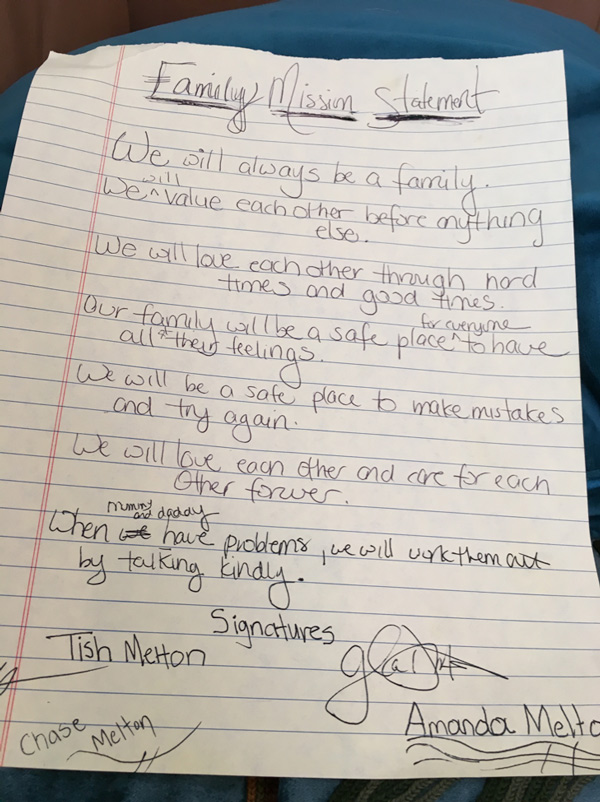 Family Mission Statement
We will always be a family.
We will value each other before anything
else.
We will love each other through hard
times and good times.
Our family will be a safe place for everyone to have
all their feelings.
We will be a safe place to make mistakes
and try again.
We will love each other and care for each
other forver.
mommy and daddy
When we have problems, we will work them out
by talking kindly.
Signatures
Tish Melton
Chase Melton
Amanda Melto